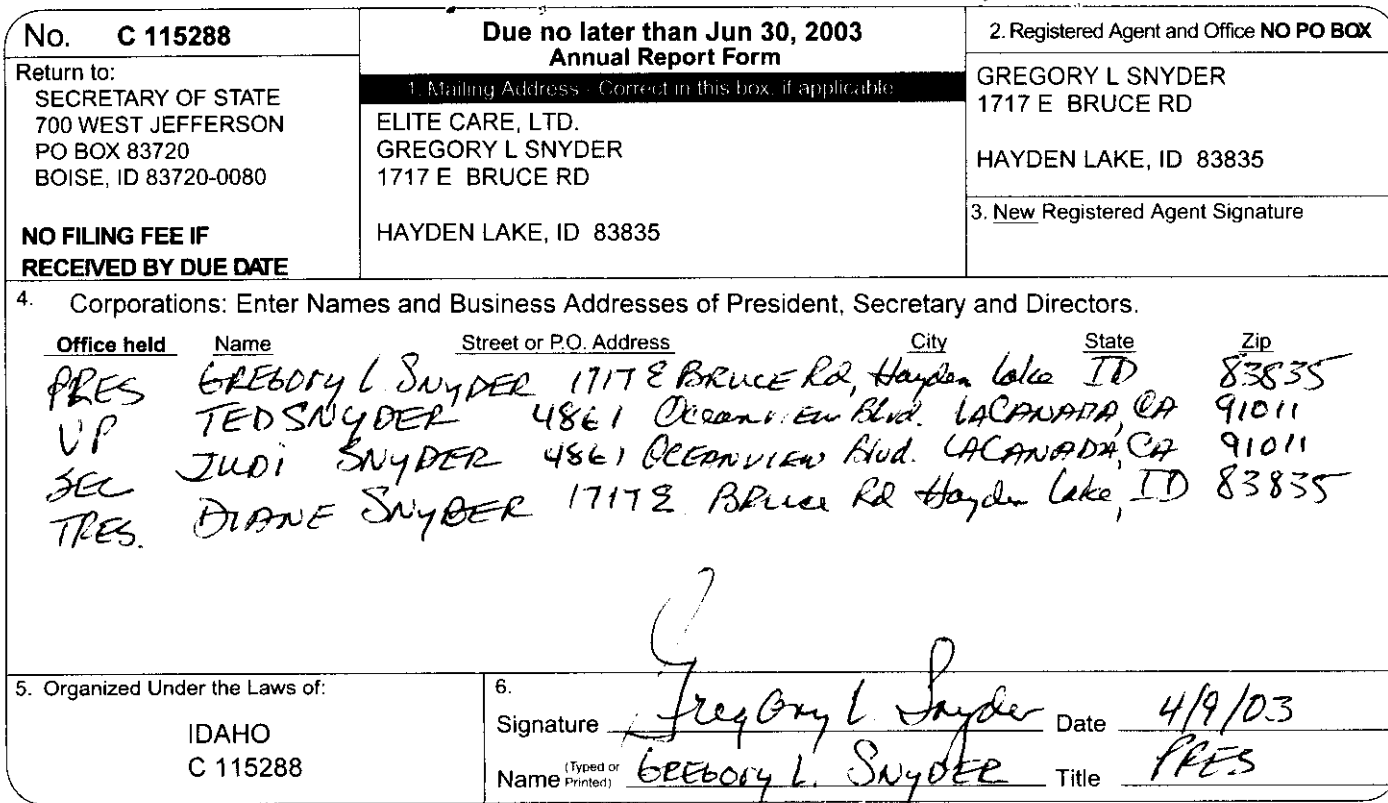 No. C 115288
Return to:
SECRETARY OF STATE
700 WEST JEFFERSON
PO BOX 83720
BOISE, ID 83720-0080
NO FILING FEE IF
RECEIVED BY DUE DATE
Due no later than Jun 30, 2003
Annual Report Form
1. Mailing Address - Correct in this box, if applicable
ELITE CARE, LTD.
GREGORY L SNYDER
1717 E BRUCE RD
HAYDEN LAKE, ID 83835
2. Registered Agent and Office NO PO BOX
GREGORY L SNYDER
1717 E BRUCE RD
HAYDEN LAKE, ID 83835
3. New Registered Agent Signature
4. Corporations: Enter Names and Business Addresses of President, Secretary and Directors.
Office held Name Street or P.O. Address City State Zip
PRES GREGORY L. SNYDER 1717 E BRUCE Rd, Hayden Lake ID 83835
VP TED SNYDER 4861 Oceanview Blvd. LACANADA, CA 91011
SEC JUDI SNYDER 4861 OCEANVIEW Blvd. LACANADA, CA 91011
TRES. DIANE SNYDER 1717 E BRuce Rd Hayden Lake, ID 83835
5. Organized Under the Laws of:
IDAHO
C 115288
6.
Signature Gregory L. Snyder Date 4/9/03
Name (Typed or Printed) GREGORY L. SNYDER Title PRES